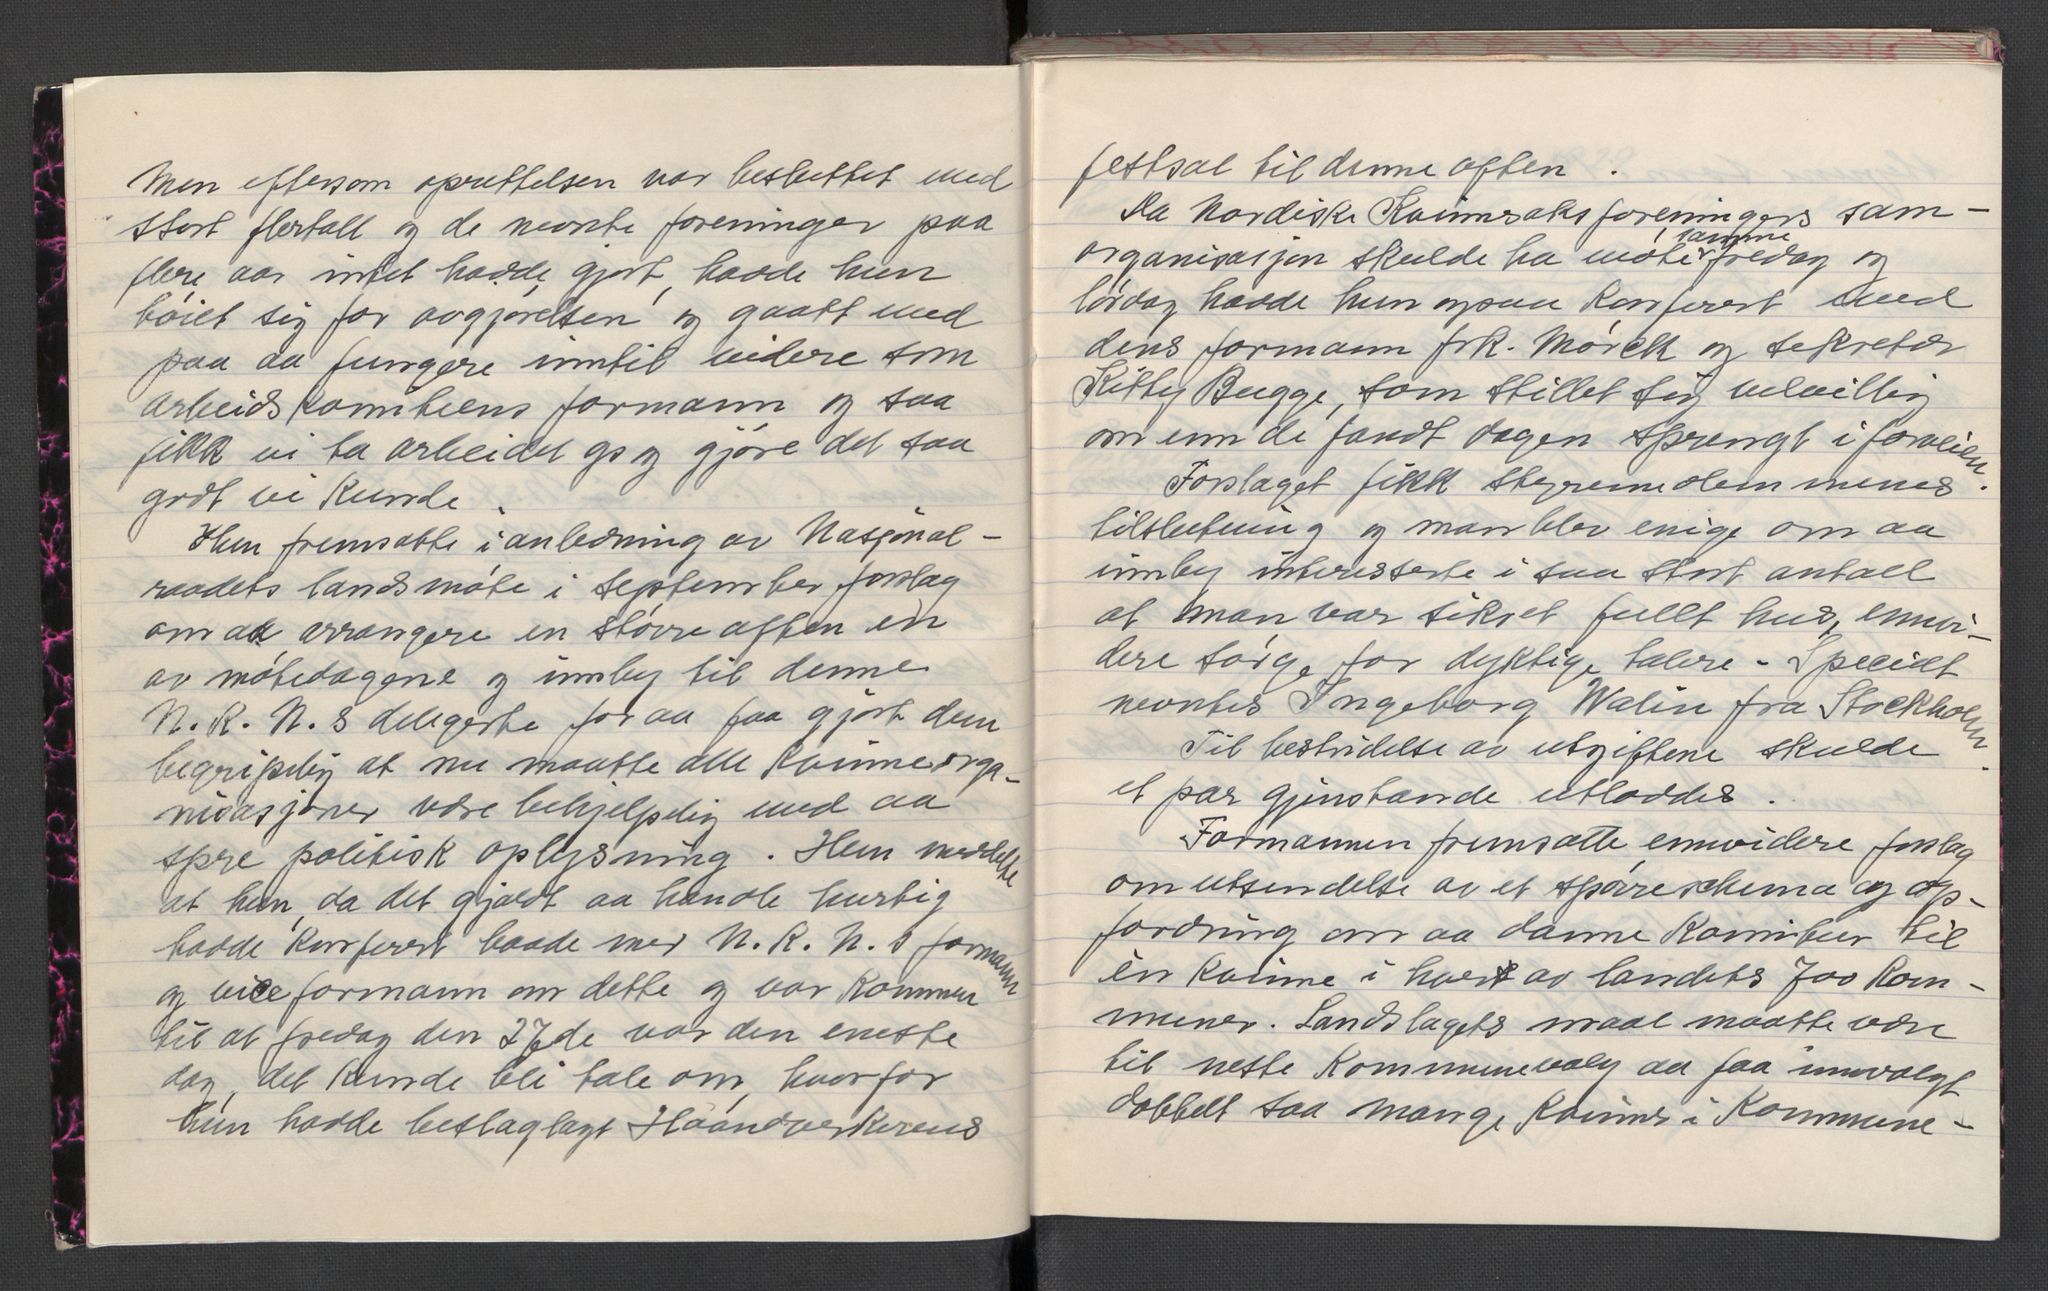 Men eftersom oprettelsen var besluttet med
stort flertall og de nevnte foreninger paa
flere aar intet hadde gjort, hadde hun
bøiet sig for avgjørelsen og gaatt med
paa aa fungere inntil videre som
arbeidskomiteens formann og saa
fikk vi ta arbeidet op og gjøre det saa
godt vi kunde.
Hun fremsatte i anledning av Nasjonal-
raadets landsmøte i september forslag
om aa arrangere en større aften en
av møtedagene og innby til denne
N. K. N. s delegerte for aa faa gjort dem
begripelig at nu maatte alle kvinneorga-
nisasjoner være behjelpelig med aa
spre politisk oplysning. Hun meddelte
at hun, da det gjaldt aa handle hurtig
hadde konferert baade med N. K. N. s formann
og viceformann om dette og var kommen
til at fredag den 27de var den eneste
dag, det kunde bli tale om, hvorfor
hun hadde beslaglagt Haandverkerens
festsal til denne aften.
Da Nordiske Kvinnesaksforeningers sam-
organisasjon skulde ha møte samme fredag og
lørdag hadde hun ogsaa konferert med
dens formann frk. Mørck og sekretær
Kitty Bugge, som stillet sig velvillig
om enn de fandt dagen sprengt i forveien.
Forslaget fikk styremedlemmenes
tilslutning og man blev enige om aa
innby interesserte i saa stort antall
at man var sikret fullt hus, envi-
dere sørge for dyktige talere - Specielt
nevntes Ingeborg Walin fra Stockholm.
Til bestridelse av utgiftene skulde
et par gjenstande utloddes.
Formannen fremsatte envidere forslag
om utsendelse av et spørreschema og op-
fordring om aa danne komiteer til
én kvinne i hver av landets 700 kom-
muner. Landslagets maal maatte være
til neste kommunevalg aa faa innvalgt
dobbelt saa mange kvinner i kommune-